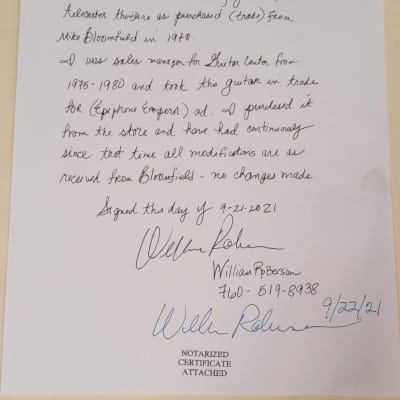 Telecaster thinline as purchased (trade) from
Mike Bloomfield in 1978.
I was sales manager for Guitar Center from
1975-1980 and took this guitar in trade
for (Epiphone Emperor) ad. I purchased it
from the store and have had continuously
since that time all modifications are as
received from Bloomfield - no changes made.
Signed this day of 9-21-2021
William
760-519-8938
9/22/21
NOTARIZED
CERTIFICATE
ATTACHED